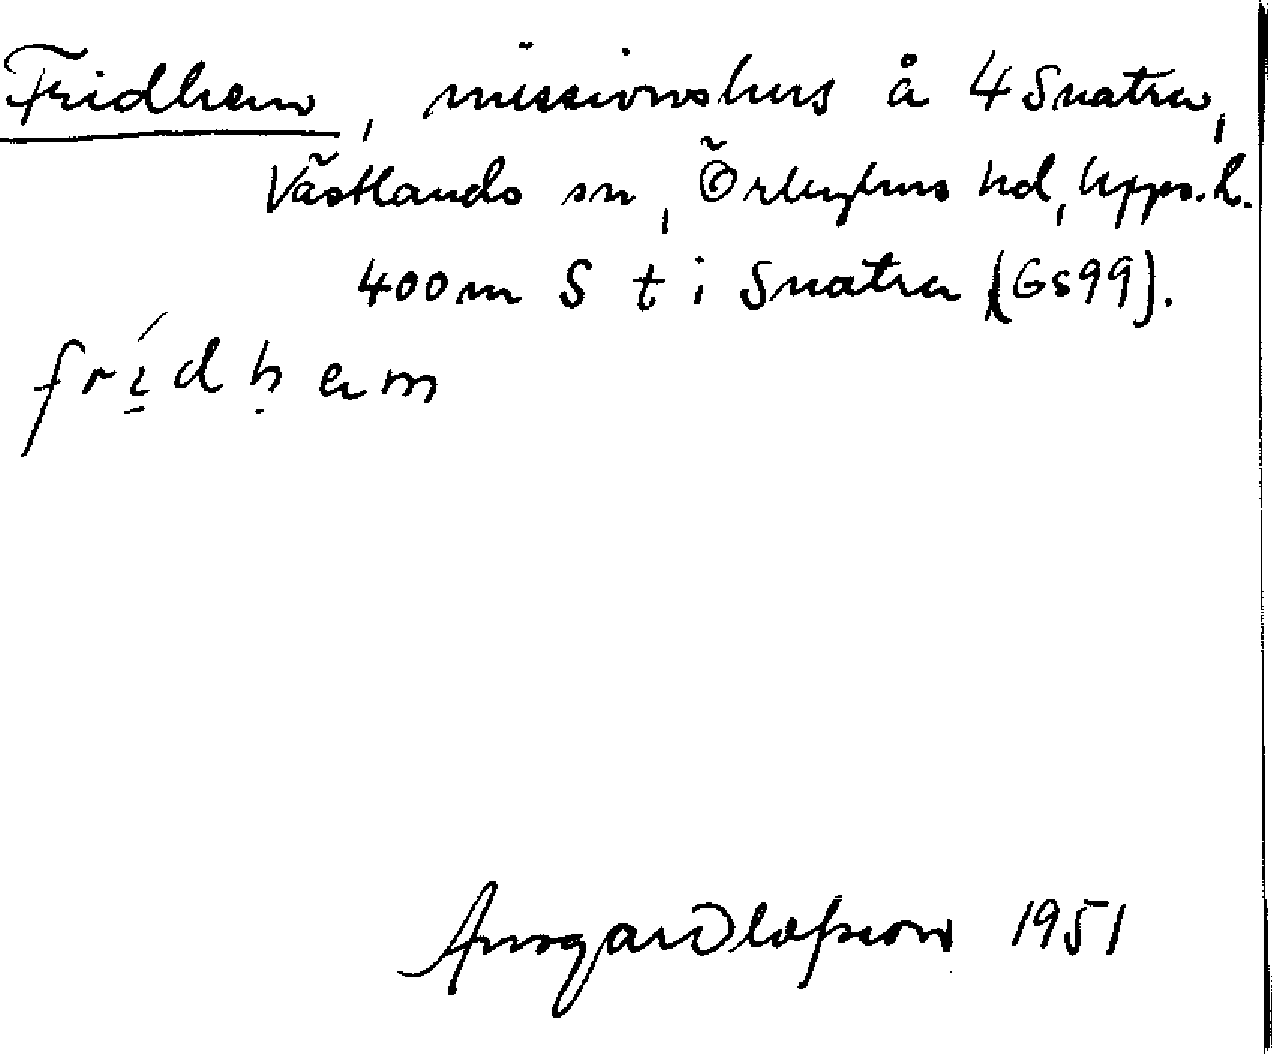 Fridhem, missionshus å 4 Snatra,
Västlands sn, Örbyhus hd, Upps. l.
400 m S t i Snatra (Gs99).
frídḥem
Ansgar Olofsson 1951